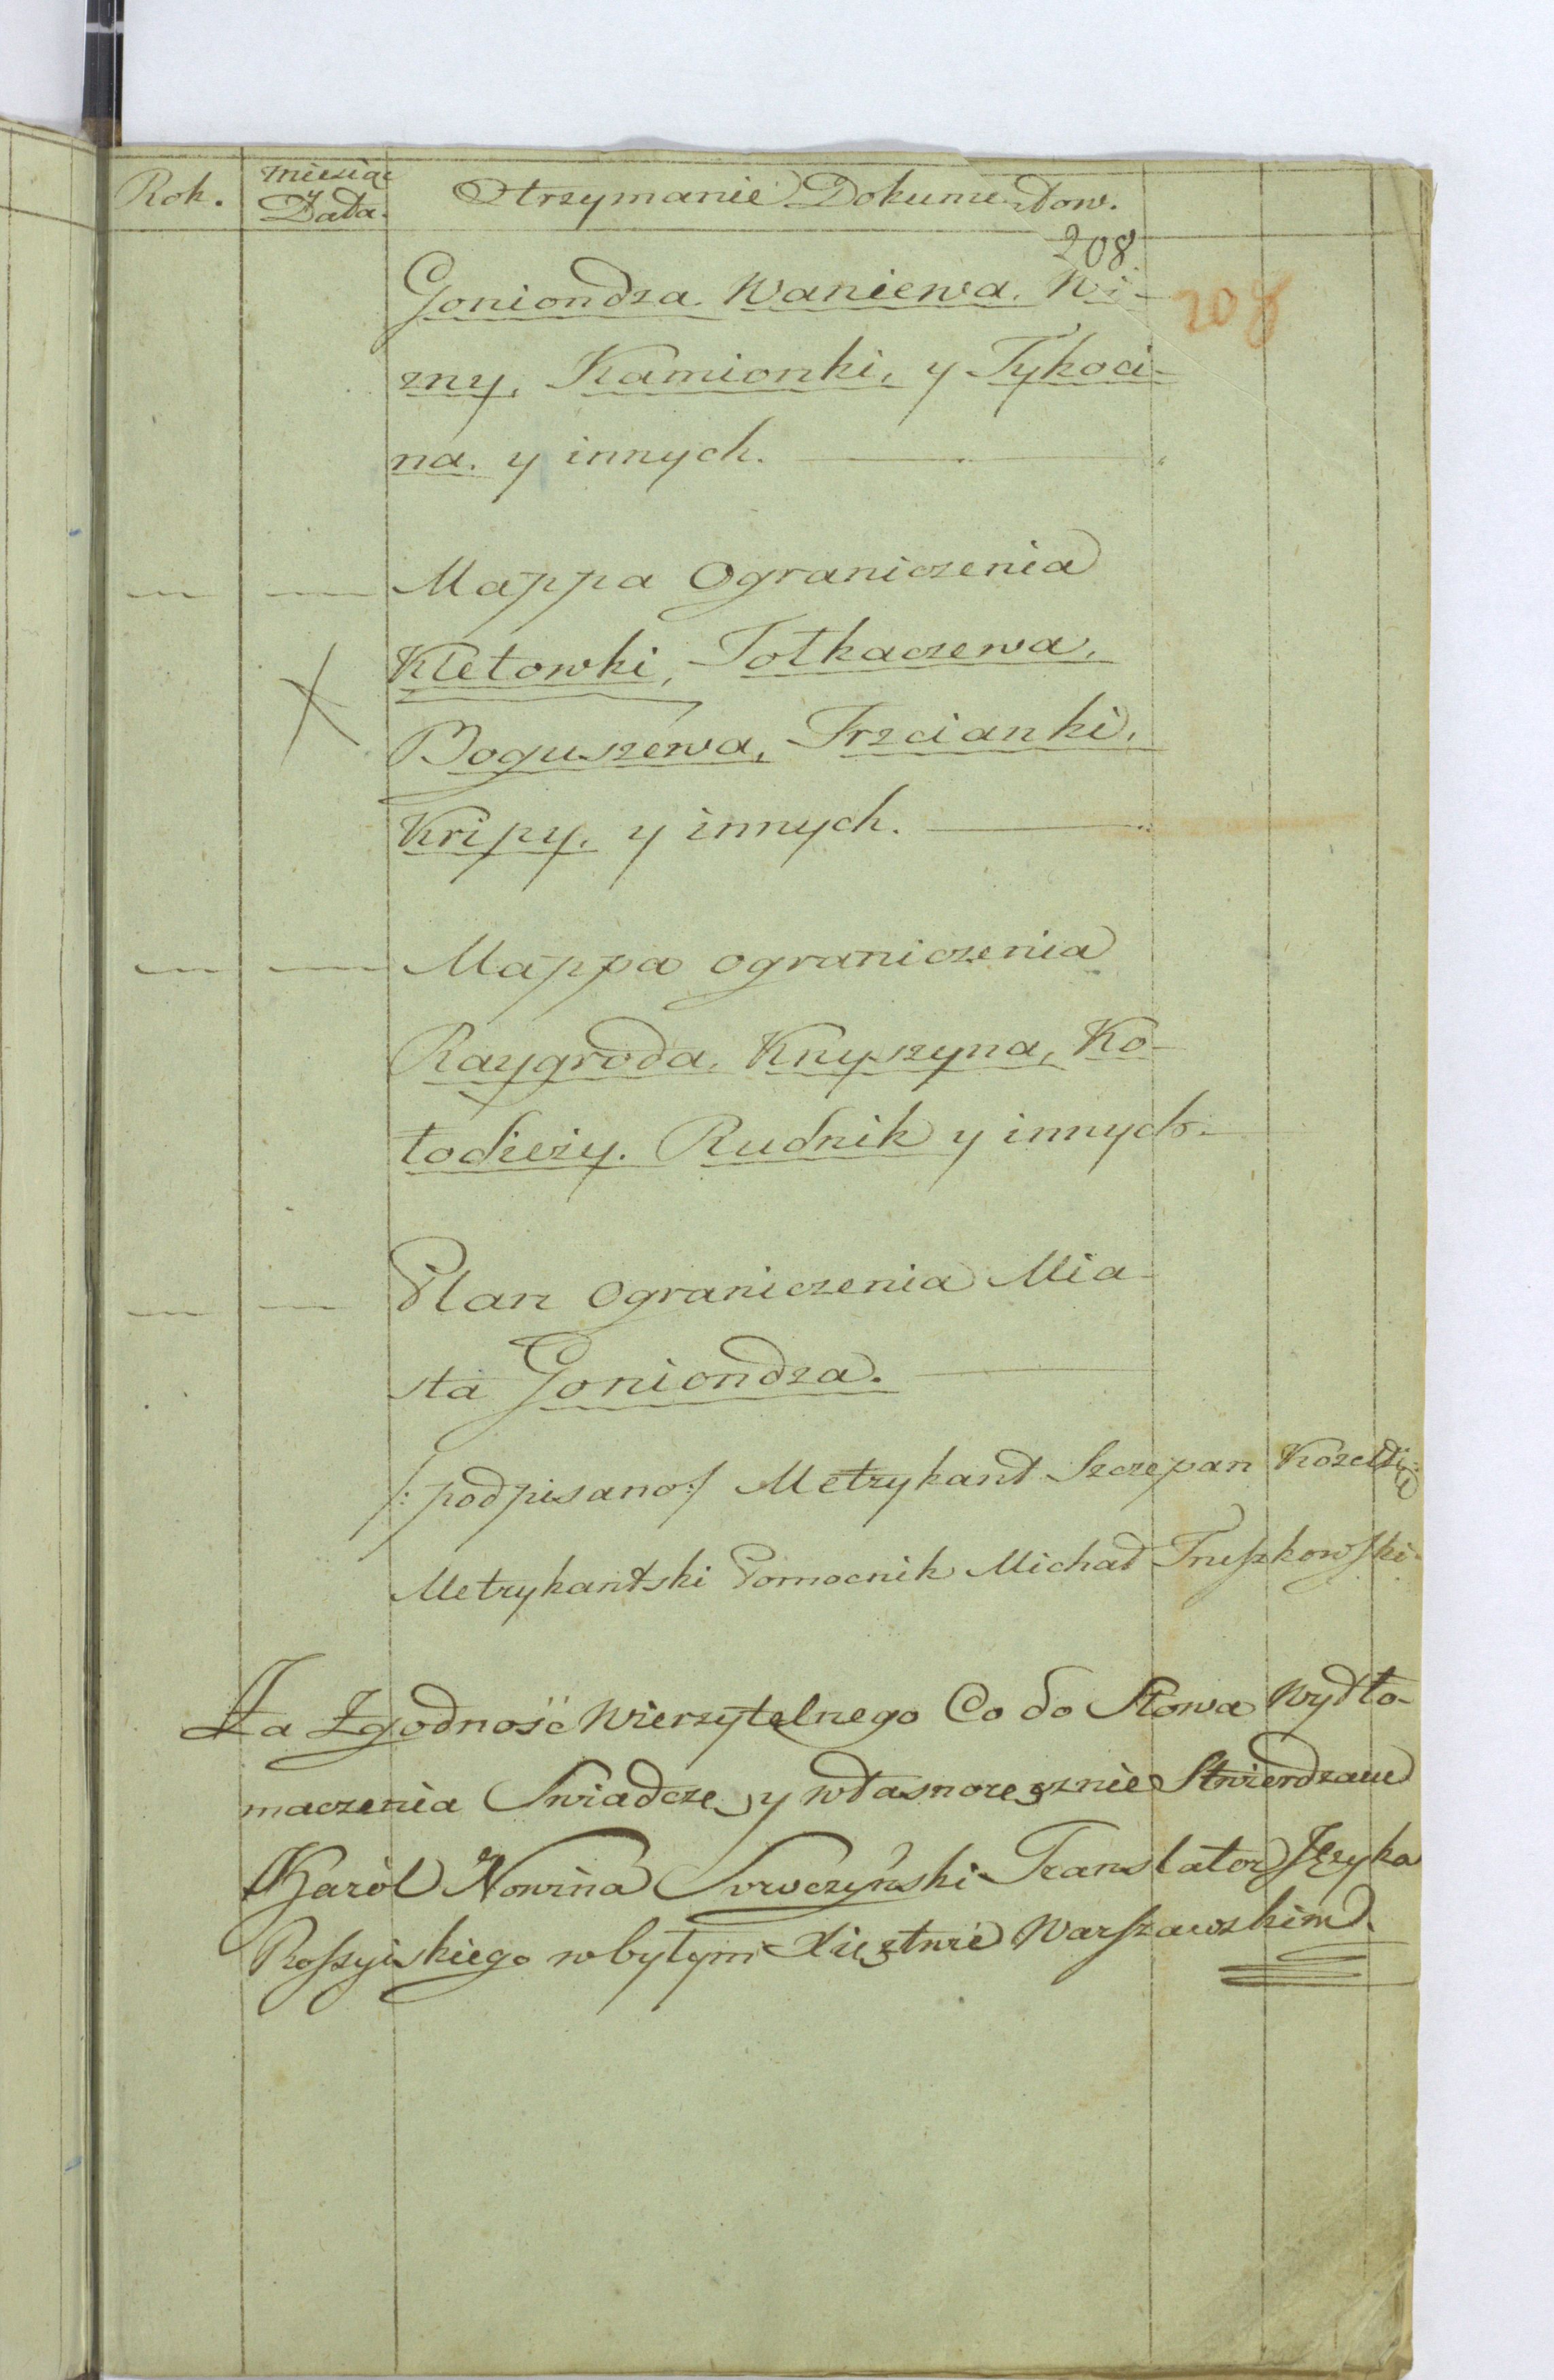 Rok.
miesiąc
y
Data.
Otrzymanie Dokumentow.
208
208
Goniondza. Waniewa. Wi-
zny, Kamionki, y Tykoci-
na. y innych.
Mappa Ograniczenia
Kletowki, Tołkaczewa,
Boguszewa, Trzcianki,
Kripy, y innych.
Mappa ograniczenia
Raygroda, Knyszyna, Ko-
łodzieży. Rudnik y innych.
Plan Ograniczenia Mia-
sta Goniondza.
/: podpisano:/ Metrykant Szczepan
Metrykantski Pomocnik Michał
Za Zgodność Wierzytelnego Co do Słowa Wydło-
maczenia Swiadczę y własnoręcznie Stwierdzam
Karol Nowina Translator Języka
Roszyiskiego w byłym Xięztwie Warszawskim.